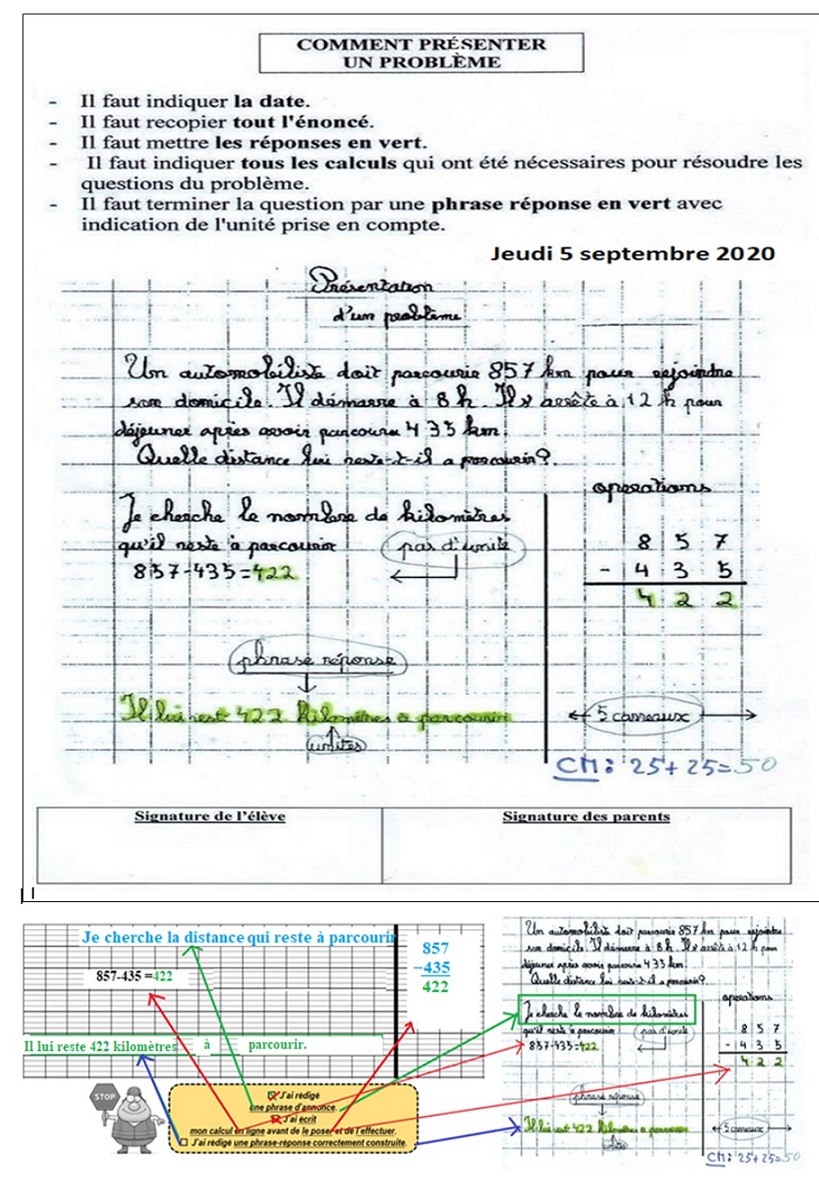 COMMENT PRÉSENTER
UN PROBLÈME
- Il faut indiquer la date.
- Il faut recopier tout l'énoncé.
- Il faut mettre les réponses en vert.
- Il faut indiquer tous les calculs qui ont été nécessaires pour résoudre les
questions du problème.
- Il faut terminer la question par une phrase réponse en vert avec
indication de l'unité prise en compte.
Jeudi 5 septembre 2020
Présentation
d'un problème
Un automobiliste doit parcourir 857 km pour rejoindre
son domicile. Il démarre à 8 h. Il s'arrête à 12 h pour
déjeuner après avoir parcouru 435 km.
Quelle distance lui reste-t-il a parcourir?
operations
Je cherche le nombre de kilomètres
qu'il reste à parcourir
pas d'unité
857-435=422
857
- 435
422
phrase réponse
Il lui rest 422 kilomètres a parcourir
unités
5 carreaux
CM: 25+25=50
Signature de l'élève
Signature des parents
Je cherche la distance qui reste à parcourir
857-435 =422
857
−435
422
Il lui reste 422 kilomètres à parcourir.
STOP
J'ai rédigé
une phrase d'annonce.
J'ai écrit
mon calcul en ligne avant de le poser et de l'effectuer.
J'ai rédigé une phrase-réponse correctement construite.
Un automobiliste doit parcourir 857 km pour rejoindre
son domicile. Il démarre à 8 h. Il s'arrête à 12 h pour
déjeuner après avoir parcouru 435 km.
Quelle distance lui reste-t-il a parcourir?
operations
Je cherche le nombre de kilomètres
qu'il reste à parcourir
pas d'unité
857-435=422
857
- 435
422
phrase réponse
Il lui rest 422 kilomètres a parcourir
unités
5 carreaux
CM: 25+25=50